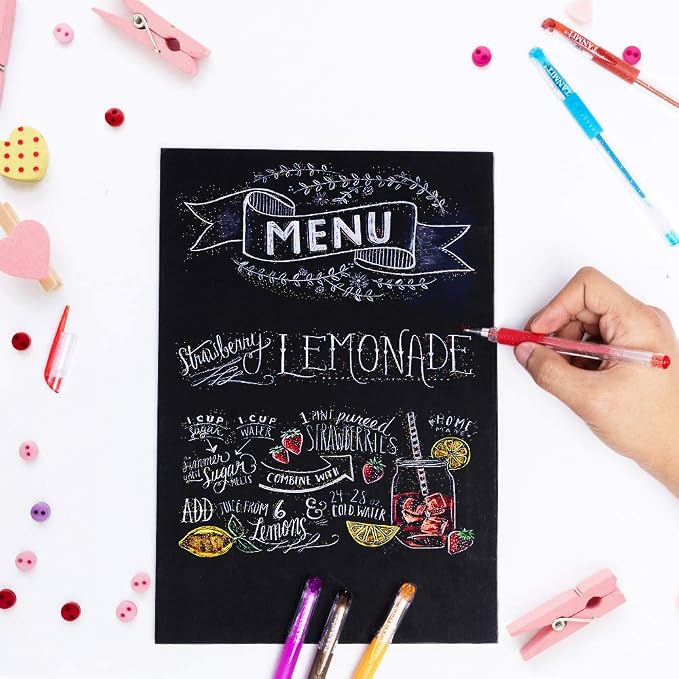 TANMIT
TANMIT
MENU
Strawberry LEMONADE
1 CUP Sugar
1 CUP WATER
1 PINT pureed STRAWBERRIES
HOME MADE
Simmer until Sugar MELTS
COMBINE WITH
ADD JUICE FROM 6 Lemons & 24-28 oz. COLD WATER